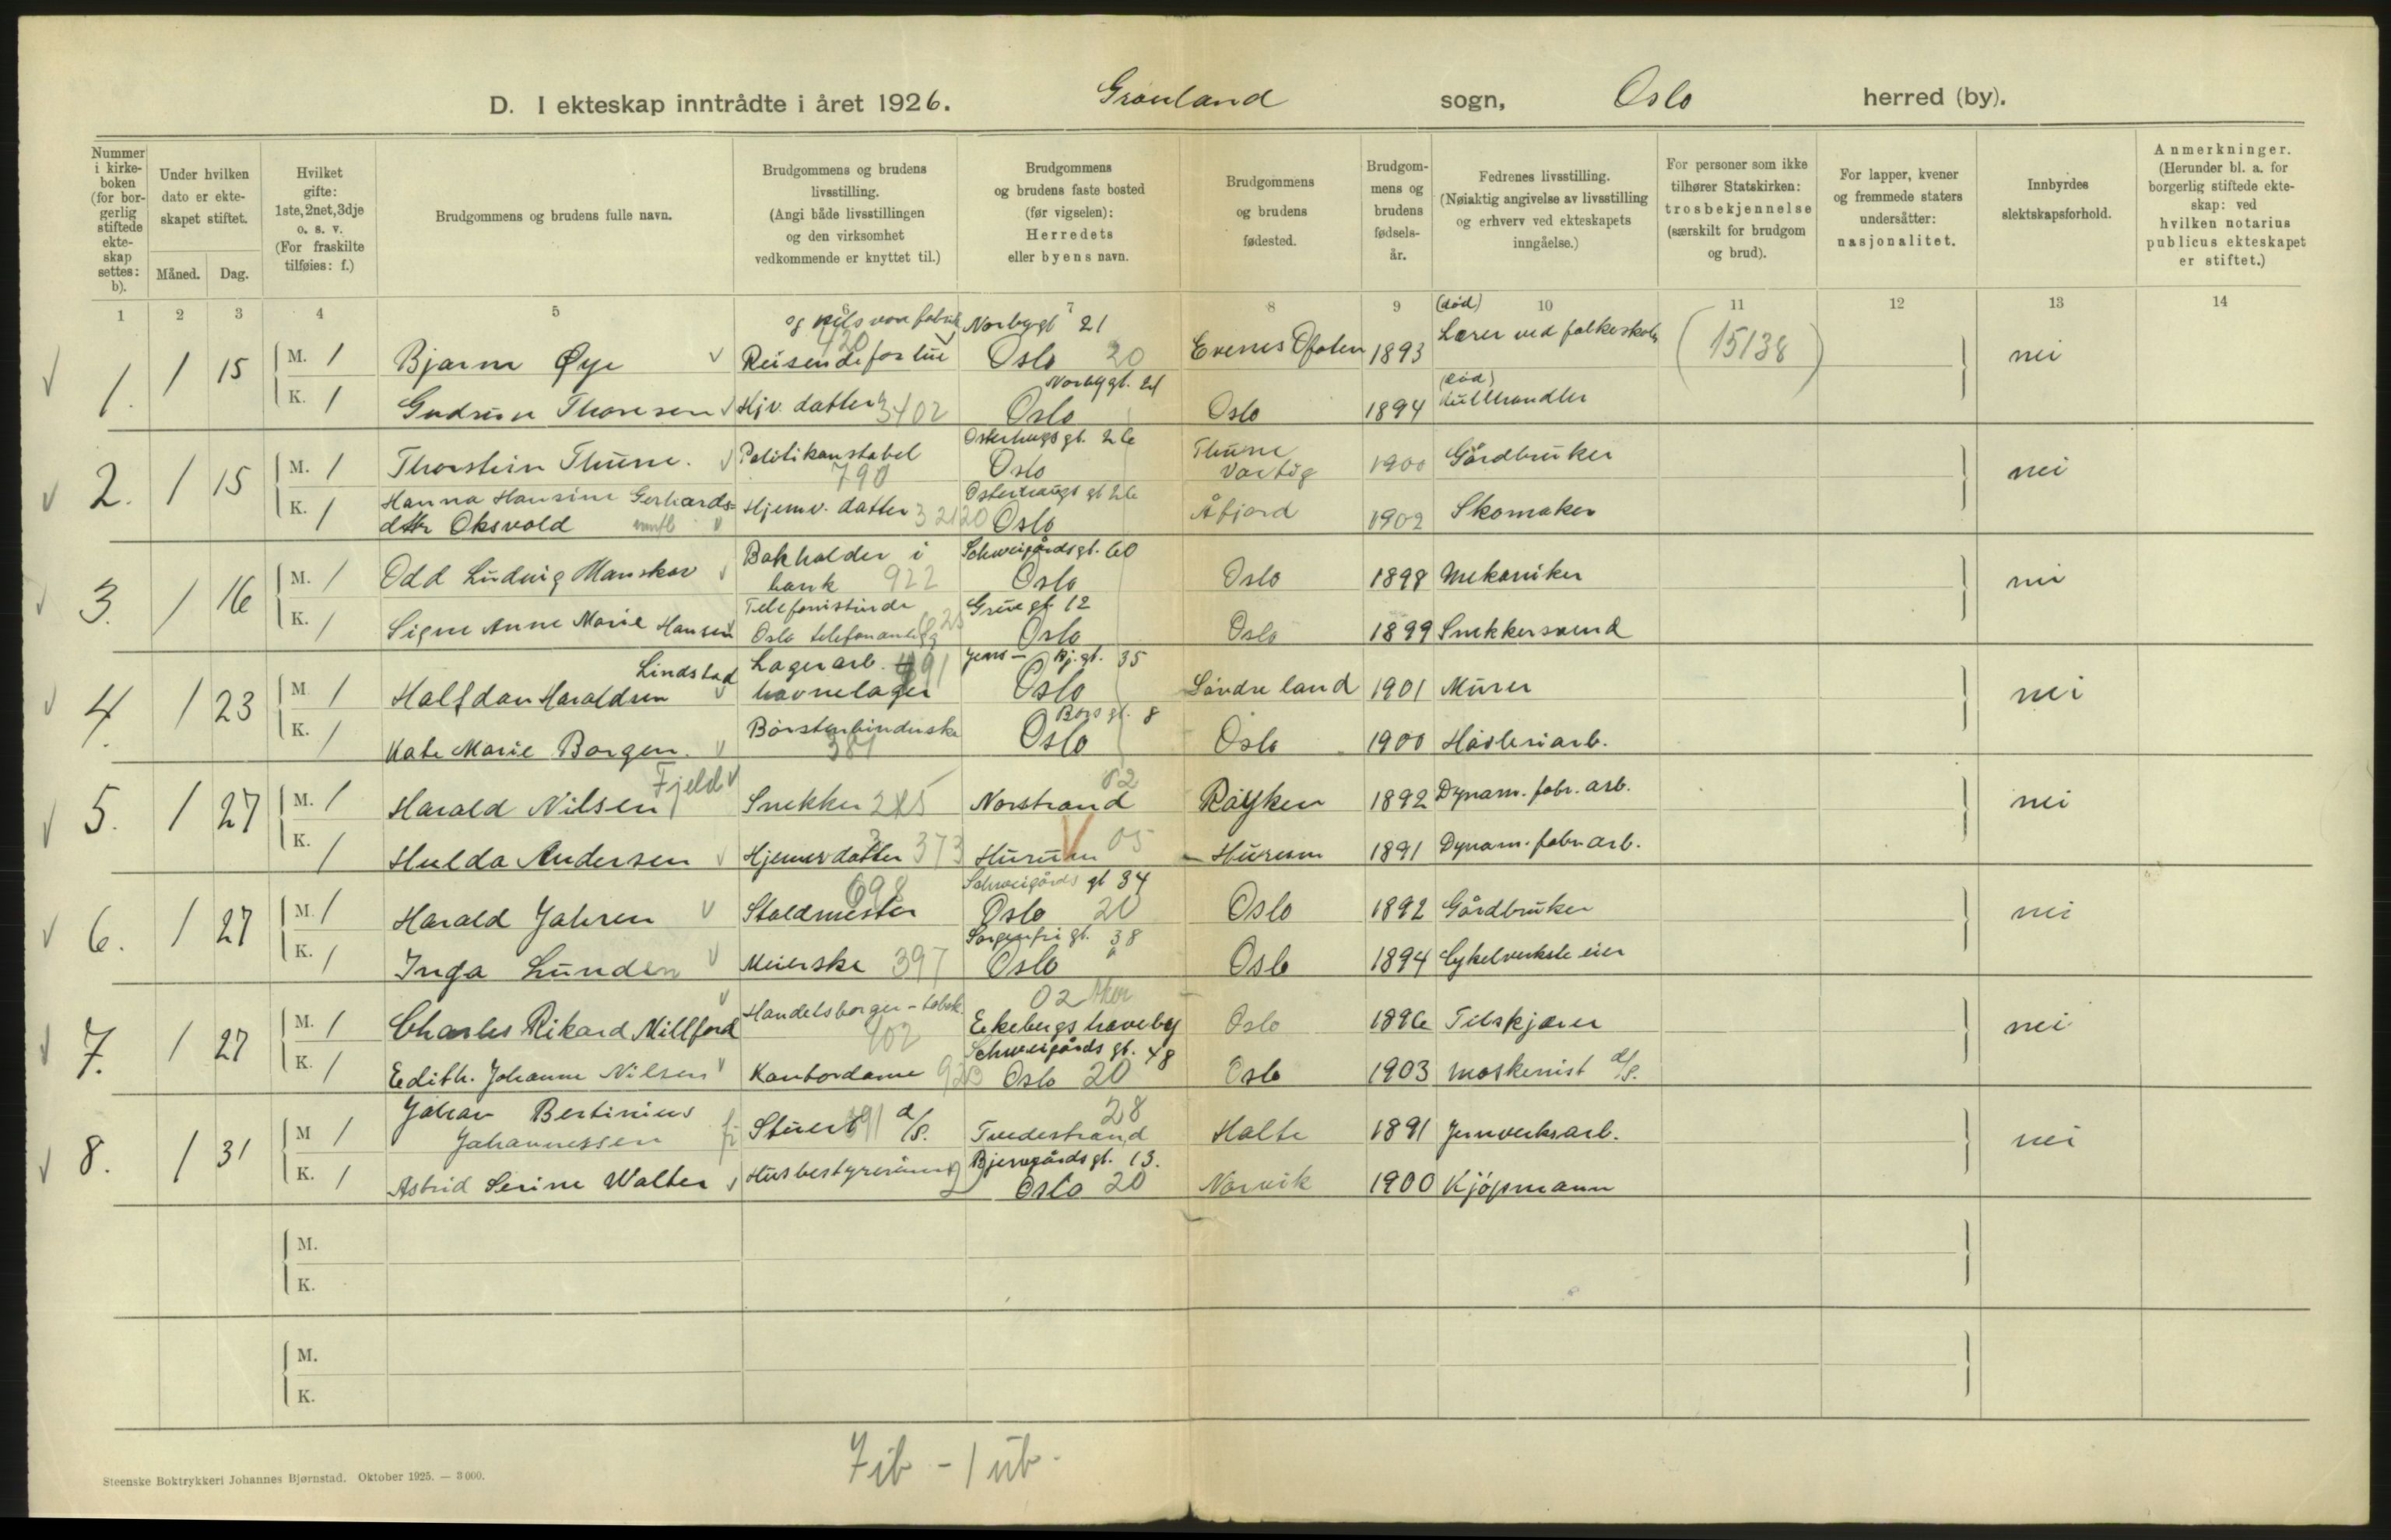 D. I ekteskap inntrådte i året 1926. Grønland sogn, Oslo herred (by).
Nummer i kirkeboken (for borgerlig stiftede ekteskap settes: b).
Under hvilken dato er ekteskapet stiftet.
Måned. Dag.
Hvilket gifte: 1ste, 2net, 3dje o. s. v. (For fraskilte tilføies: f.)
Brudgommens og brudens fulle navn.
Brudgommens og brudens livsstilling. (Angi både livsstillingen og den virksomhet vedkommende er knyttet til.)
Brudgommens og brudens faste bosted (før vigselen): Herredets eller byens navn.
Brudgommens og brudens fødested.
Brudgommens og brudens fødselsår.
Fedrenes livsstilling. (Nøiaktig angivelse av livsstilling og erhverv ved ekteskapets inngåelse.)
For personer som ikke tilhører Statskirken: trosbekjennelse (særskilt for brudgom og brud).
For lapper, kvener og fremmede staters undersåtter: nasjonalitet.
Innbyrdes slektskapsforhold.
Anmerkninger. (Herunder bl. a. for borgerlig stiftede ekteskap: ved hvilken notarius publicus ekteskapet er stiftet.)
1 2 3 4 5 6 7 8 9 10 11 12 13 14
1. 1 15 M. 1 Bjarne Øye Reisende for lue og pelsvarefabrik 420 Norbygt 21 Oslo 20 Evenes Ofoten 1893 (død) Lærer ved folkeskole (15138) nei
K. 1 Gudrun Thoresen Hjv. datter 3402 Norbygt. 21 Oslo Oslo 1894 (død) Kullhandler
2. 1 15 M. 1 Thorstein Thune. Politikonstabel 790 Osterhugsgt. 26 Oslo Thune Vartig 1900 Gårdbruker nei
K. 1 Hanna Hansine Gerhards=
dttr Oksvold Hjemv. datter Osterhaugs gt 26 Oslo Åfjord 1902 Skomaker
3. 1 16 M. 1 Odd Ludvig Manskov Bokholder i bank 922 Schweigårdsgt. 60 Oslo Oslo 1898 Mekaniker nei
K. 1 Signe Anne Marie Hansen Telefonistinde Oslo telefonanlegg Grue gt. 12 Oslo Oslo 1899 Snekkersvend
4. 1 23 M. 1 Halfdan Haraldsen Lindstad Lagerarb. havnelager Jens-Bj.gt. 35 Oslo Søndre land 1901 Murer nei
K. 1 Kate Marie Borgen. Børstenbinderske 381 Borsgt. 8 Oslo Oslo 1900 Høvleriarb.
5. 1 27 M. 1 Harald Nilsen Fjeld Snekker 02 Norstrand Røyken 1892 Dynam. fabr. arb. nei
K. 1 Hulda Andersen Hjemmedatter 373 Hurum 05 Hurum 1891 Dynam. fabr arb.
6. 1 27 M. 1 Harald Jahren Staldmester 698 Schweigårds gt 34 Oslo 20 Oslo 1892 Gårdbruker nei
K. 1 Inga Lunden Meierske 397 Sorgenfri gt. 38 Oslo Oslo 1894 Cykelverkste eier
7. 1 27 M. 1 Charles Rikard Millford Handelsborger - tobak. 02 Aker Ekebergs haveby Oslo 1896 Tilskjærer nei
K. 1 Edith. Johanne Nilsen Kontordame 923 Schweigårds gt. 48 Oslo 20 Oslo 1903 Maskenist d/s.
8. 1 31 M 1 Johan Bertinius Johannessen Stuert d/s. 28 Tvedestrand Holte 1891 Jernverksarb. nei
K. 1 Astrid Serine Walter Husbestyrerinne Bjerregårdsgt. 13. Oslo 20 Narvik 1900 Kjøpmann
M.
K.
M.
K.
7 ib - 1 ub.
Steenske Boktrykkeri Johannes Bjørnstad. Oktober 1925. — 3000.